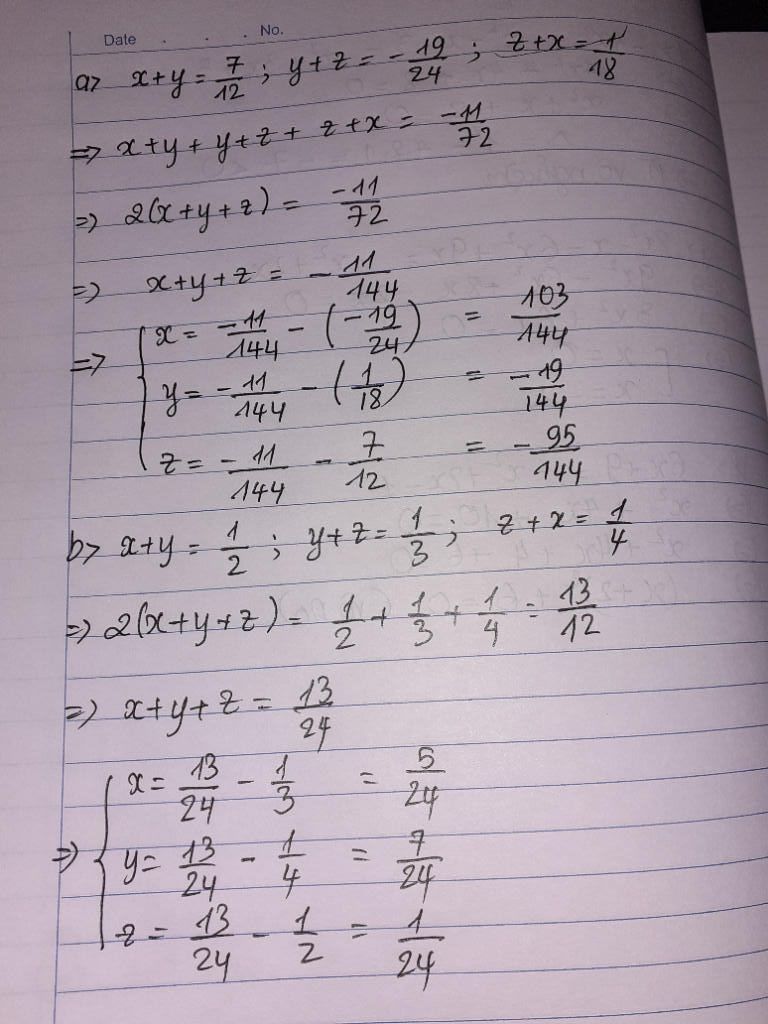 Date . . . No.
a> x+y = 7/12 ; y+z = -19/24 ; z+x = 1/18
=> x+y+y+z+z+x = -11/72
=> 2(x+y+z) = -11/72
=> x+y+z = -11/144
=> { x = -11/144 - (-19/24) = 103/144
y = -11/144 - (1/18) = -19/144
z = -11/144 - 7/12 = -95/144
b> x+y = 1/2 ; y+z = 1/3 ; z+x = 1/4
=> 2(x+y+z) = 1/2 + 1/3 + 1/4 = 13/12
=> x+y+z = 13/24
=> { x = 13/24 - 1/3 = 5/24
y = 13/24 - 1/4 = 7/24
z = 13/24 - 1/2 = 1/24